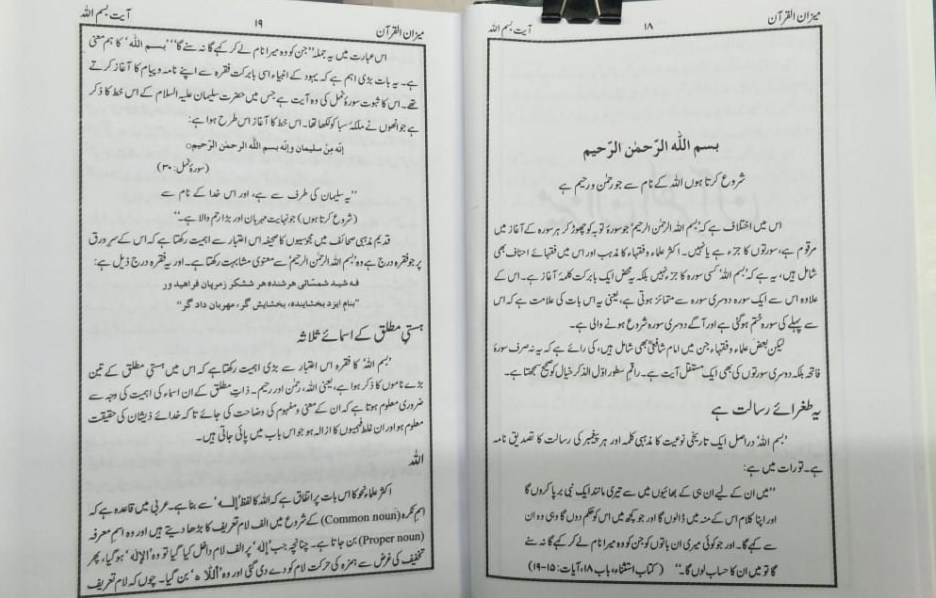 میزان القرآن
۱۸
آیت بسم اللہ
بسم اللہ الرّحمٰن الرّحیم
شروع کرتا ہوں اللہ کے نام سے جو رحمٰن و رحیم ہے
اس میں اختلاف ہے کہ ’بسم اللہ الرحمٰن الرحیم‘ جو سورۂ توبہ کو چھوڑ کر ہر سورہ کے آغاز میں
مرقوم ہے، سورتوں کا جزء ہے یا نہیں۔ اکثر علماء و فقہاء کا مذہب اور اس میں فقہائے احناف بھی
شامل ہیں، یہ ہے کہ ’بسم اللہ‘ کسی سورہ کا جز نہیں بلکہ یہ محض ایک بابرکت کلمۂ آغاز ہے۔ اس کے
علاوہ اس سے ایک سورہ دوسری سورہ سے متمائز ہوتی ہے، یعنی یہ اس بات کی علامت ہے کہ اس
سے پہلے کی سورہ ختم ہوگئی ہے اور آگے دوسری سورہ شروع ہونے والی ہے۔
لیکن بعض علماء و فقہاء جن میں امام شافعیؒ بھی شامل ہیں، کی رائے ہے کہ یہ نہ صرف سورۂ
فاتحہ بلکہ دوسری سورتوں کی بھی ایک مستقل آیت ہے۔ راقم سطور اوّل الذکر خیال کو صحیح سمجھتا ہے۔
یہ طغرائے رسالت ہے
’بسم اللہ‘ دراصل ایک تاریخی نوعیت کا مذہبی کلمہ اور ہر پیغمبر کی رسالت کا تصدیق نامہ
ہے۔ تورات میں ہے:
’’میں ان کے لیے ان ہی کے بھائیوں میں سے تیری مانند ایک نبی برپا کروں گا
اور اپنا کلام اس کے منہ میں ڈالوں گا اور جو کچھ میں اس کو حکم دوں گا وہی وہ ان
سے کہے گا۔ اور جو کوئی میری ان باتوں کو جن کو وہ میرا نام لے کر کہے گا نہ سنے
گا تو میں ان کا حساب لوں گا۔‘‘ (کتاب استثناء، باب ۱۸، آیات: ۱۵-۱۹)
میزان القرآن
۱۹
آیت بسم اللہ
اس عبارت میں یہ جملہ ’’جن کو وہ میرا نام لے کر کہے گا نہ سنے گا‘‘ ’بسم اللہ‘ کا ہم معنی
ہے۔ یہ بات بڑی اہم ہے کہ یہود کے انبیاء اسی بابرکت فقرہ سے اپنے نامہ و پیام کا آغاز کرتے
تھے۔ اس کا ثبوت سورۂ نمل کی وہ آیت ہے جس میں حضرت سلیمان علیہ السلام کے اس خط کا ذکر
ہے جو انھوں نے ملکۂ سبا کو لکھا تھا۔ اس خط کا آغاز اس طرح ہوا ہے:
إنّه مِنْ سليمان وإنّه بسم اللّٰہ الرحمٰن الرحیم○
(سورۂ نمل: ۳۰)
’’یہ سلیمان کی طرف سے ہے، اور اس خدا کے نام سے
(شروع کرتا ہوں) جو نہایت مہربان اور بڑا رحم والا ہے۔‘‘
قدیم مذہبی صحائف میں مجوسیوں کا صحیفہ اس اعتبار سے اہمیت رکھتا ہے کہ اس کے سرِ ورق
پر جو فقرہ درج ہے وہ ’بسم اللہ الرحمٰن الرحیم‘ سے معنوی مشابہت رکھتا ہے۔ اور یہ فقرہ درج ذیل ہے:
فہ شید شمتائی ھرشندہ ھر ششگر زمرپان فراھید ور
”بنام ایزد بخشایندہ، بخشایش گر، مھربان داد گر“
ہستیِ مطلق کے اسمائے ثلاثہ
’بسم اللہ‘ کا فقرہ اس اعتبار سے بڑی اہمیت رکھتا ہے کہ اس میں ہستیِ مطلق کے تین
بڑے ناموں کا ذکر ہوا ہے، یعنی اللہ، رحمٰن اور رحیم۔ ذاتِ مطلق کے ان اسماء کی اہمیت کی وجہ سے
ضروری معلوم ہوتا ہے کہ ان کے معنی و مفہوم کی وضاحت کی جائے تاکہ خدائے ذیشان کی حقیقت
معلوم ہو اور ان غلط فہمیوں کا ازالہ ہو جو اس باب میں پائی جاتی ہیں۔
اللہ
اکثر علماء نحو کا اس بات پر اتفاق ہے کہ اللہ کا لفظ ’إلٰـہ‘ سے بنا ہے۔ عربی میں قاعدہ ہے کہ
اسم نکرہ (Common noun) کے شروع میں الف لام تعریف کا بڑھا دیتے ہیں اور وہ اسم معرفہ
(Proper noun) بن جاتا ہے۔ چنانچہ جب ’إلٰہ‘ پر الف لام داخل کیا گیا تو وہ ’الإلٰہ‘ ہوگیا، پھر
تخفیف کی غرض سے ہمزہ کی حرکت لام کو دے دی گئی اور وہ ’أللٰا ہ‘ بن گیا۔ چوں کہ لام تعریف